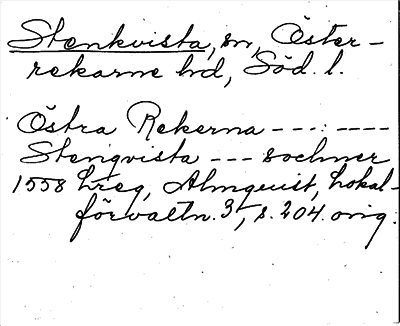 Stenkvista, sn, Öster-
rekarne hd, Söd. l.
Östra Rekerna --- : ----
Stenqvista --- sochner
1558 Lreg, Almquist, Lokal-
förvaltn. 3, s. 204. orig.